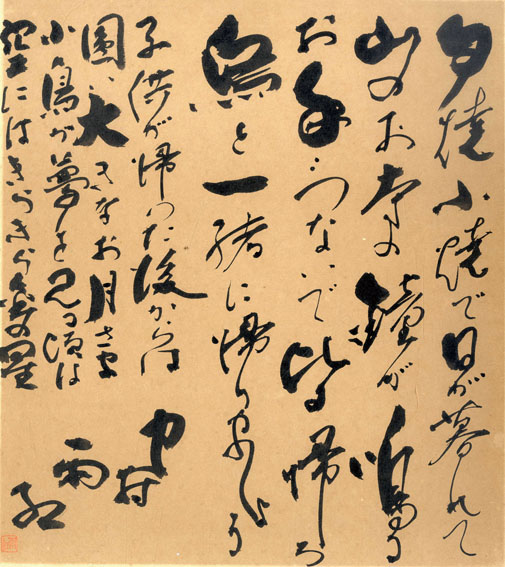 夕焼小焼で日が暮れて
山のお寺の鐘が鳴る
お手々つないで皆帰ろ
烏と一緒に帰りましょう
子供が帰った後からは
圓い大きなお月さま
小鳥が夢を見る頃は
空にはきらきら金の星
中村
雨紅